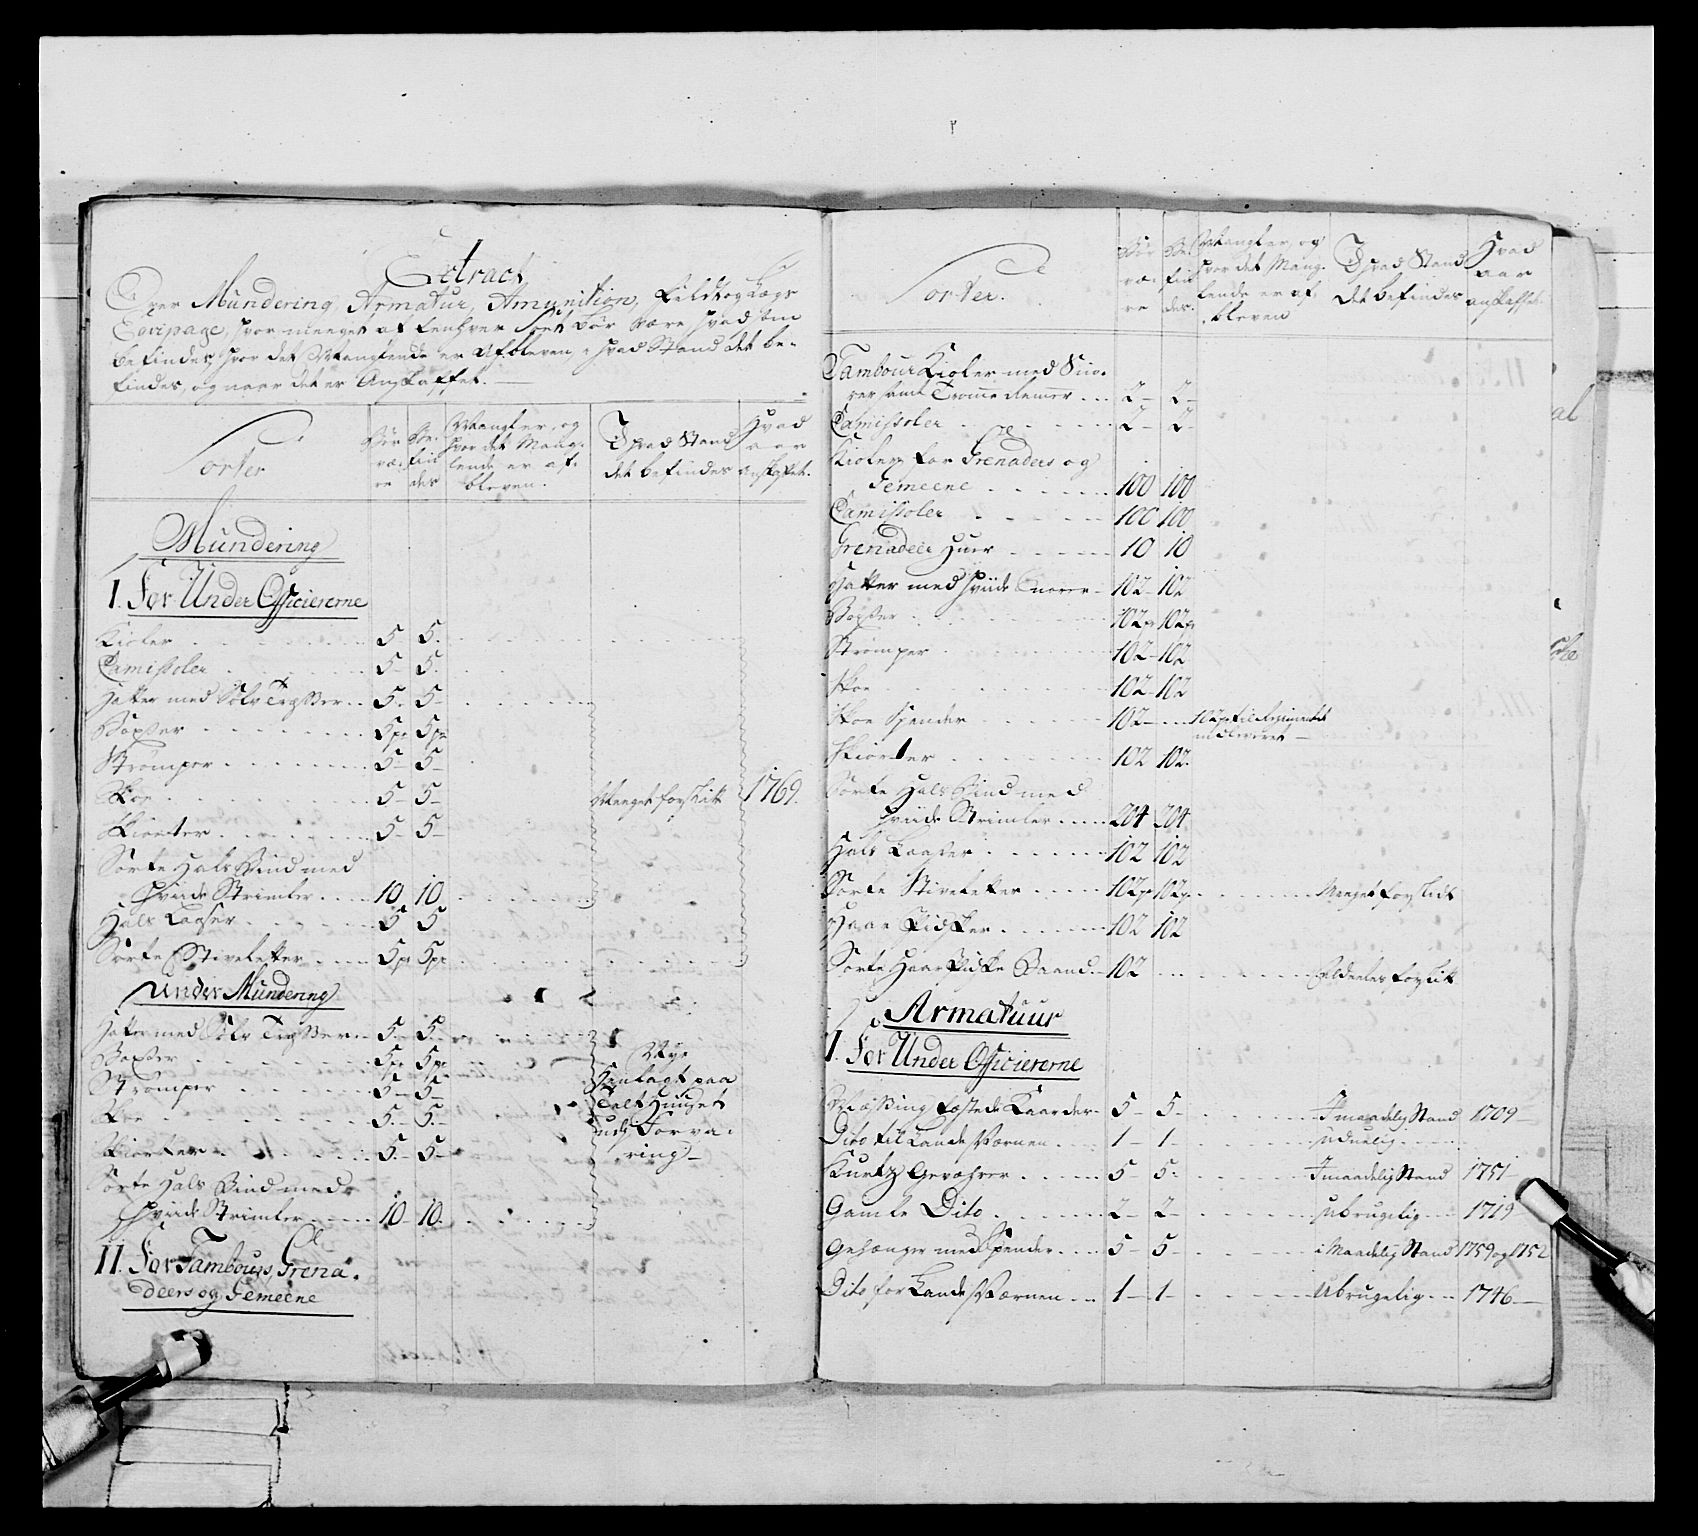 Extract
Over Mundering, Armatur, Amunition, Feldtog Tøys
Eqvipage, hvor meeget af Eenhver Sort bør være hvad som
befindes, hvor det Manglende er Afbleven, i hvad Stand det be-
findes, og naar det er Anskaffet. —
Sorter
Bør
væ-
re
Be-
fin
des
Mangler, og
hvor det Mang-
lende er af-
bleven.
I hvad Stand
det befindes
Hvad
aar
anskaffet.
Mundering
I. For Under Officiererne
Kioler 5 5.
Camissoler 5 5.
Hatter med Sølv Tresser 5. 5
Boxser 5pr 5pr
Strømper 5 5
Skoe 5 5 Meeget forslitt 1769.
Skiorter 5 5
Sorte Hals Bind med
hvide Strimler 10 10
Hals Laaser 5 5
Sorte Stivletter 5pr 5pr
Under Mundering
Hatter med Sølv Tresser 5 5
Boxser 5pr 5pr
Strømper 5 5
Skoe 5. 5.
Skiorter 5. 5
Sorte Hals Bind med
hvide Strimler 10 10.
Nye
Henlagt paa
Telt Huuset
udj Forva-
ring
II. For Tambours, Grena-
deers og Gemeene
Sorter.
Bør
væ-
re
Be
fin
des.
Mangler, og
hvor det Mang-
lende er af-
bleven
I hvad Stand
det befindes
Hvad
aar
anskaffet.
Tambour Kioler med Snø-
rer samt Tromme Remer 2 2
Camissoler 2 2
Kioler for Grenaders og
Gemeene 100 100
Camissoler 100 100
Grenadeer Huer 10 10
Hatter med hvide Snorer 102 102
Boxser 102pr 102pr
Strømper 102 102
Skoe 102 102
Skoe Spender 102 102pr til Regimentet
indleveret
Skiorter 102 102.
Sorte Hals Bind med
hvide Strimler 204 204
Hals Laaser 102 102
Sorte Stivletter 102pr 102pr Meeget forslidt
Haar Pidsker 102 102
Sorte Haar Pidske Baand 102 Aldeeles forslitt
Armatuur
I. For Under Officiererne
Messing fæstede Kaarder 5 5 I maadelig Stand 1709
Dito til Lande Værnen 1 1 ubruelig
Kurtz Gevæhrer 5 5 I maadelig Stand 1751
Gamle Dito 2 2 ubrugelig 1719
Gehænger med Spender 5 5 i Maadelig Stand 1759 og 1752
Dito for Lande Værnen 1 1 Ubrugelig 1746